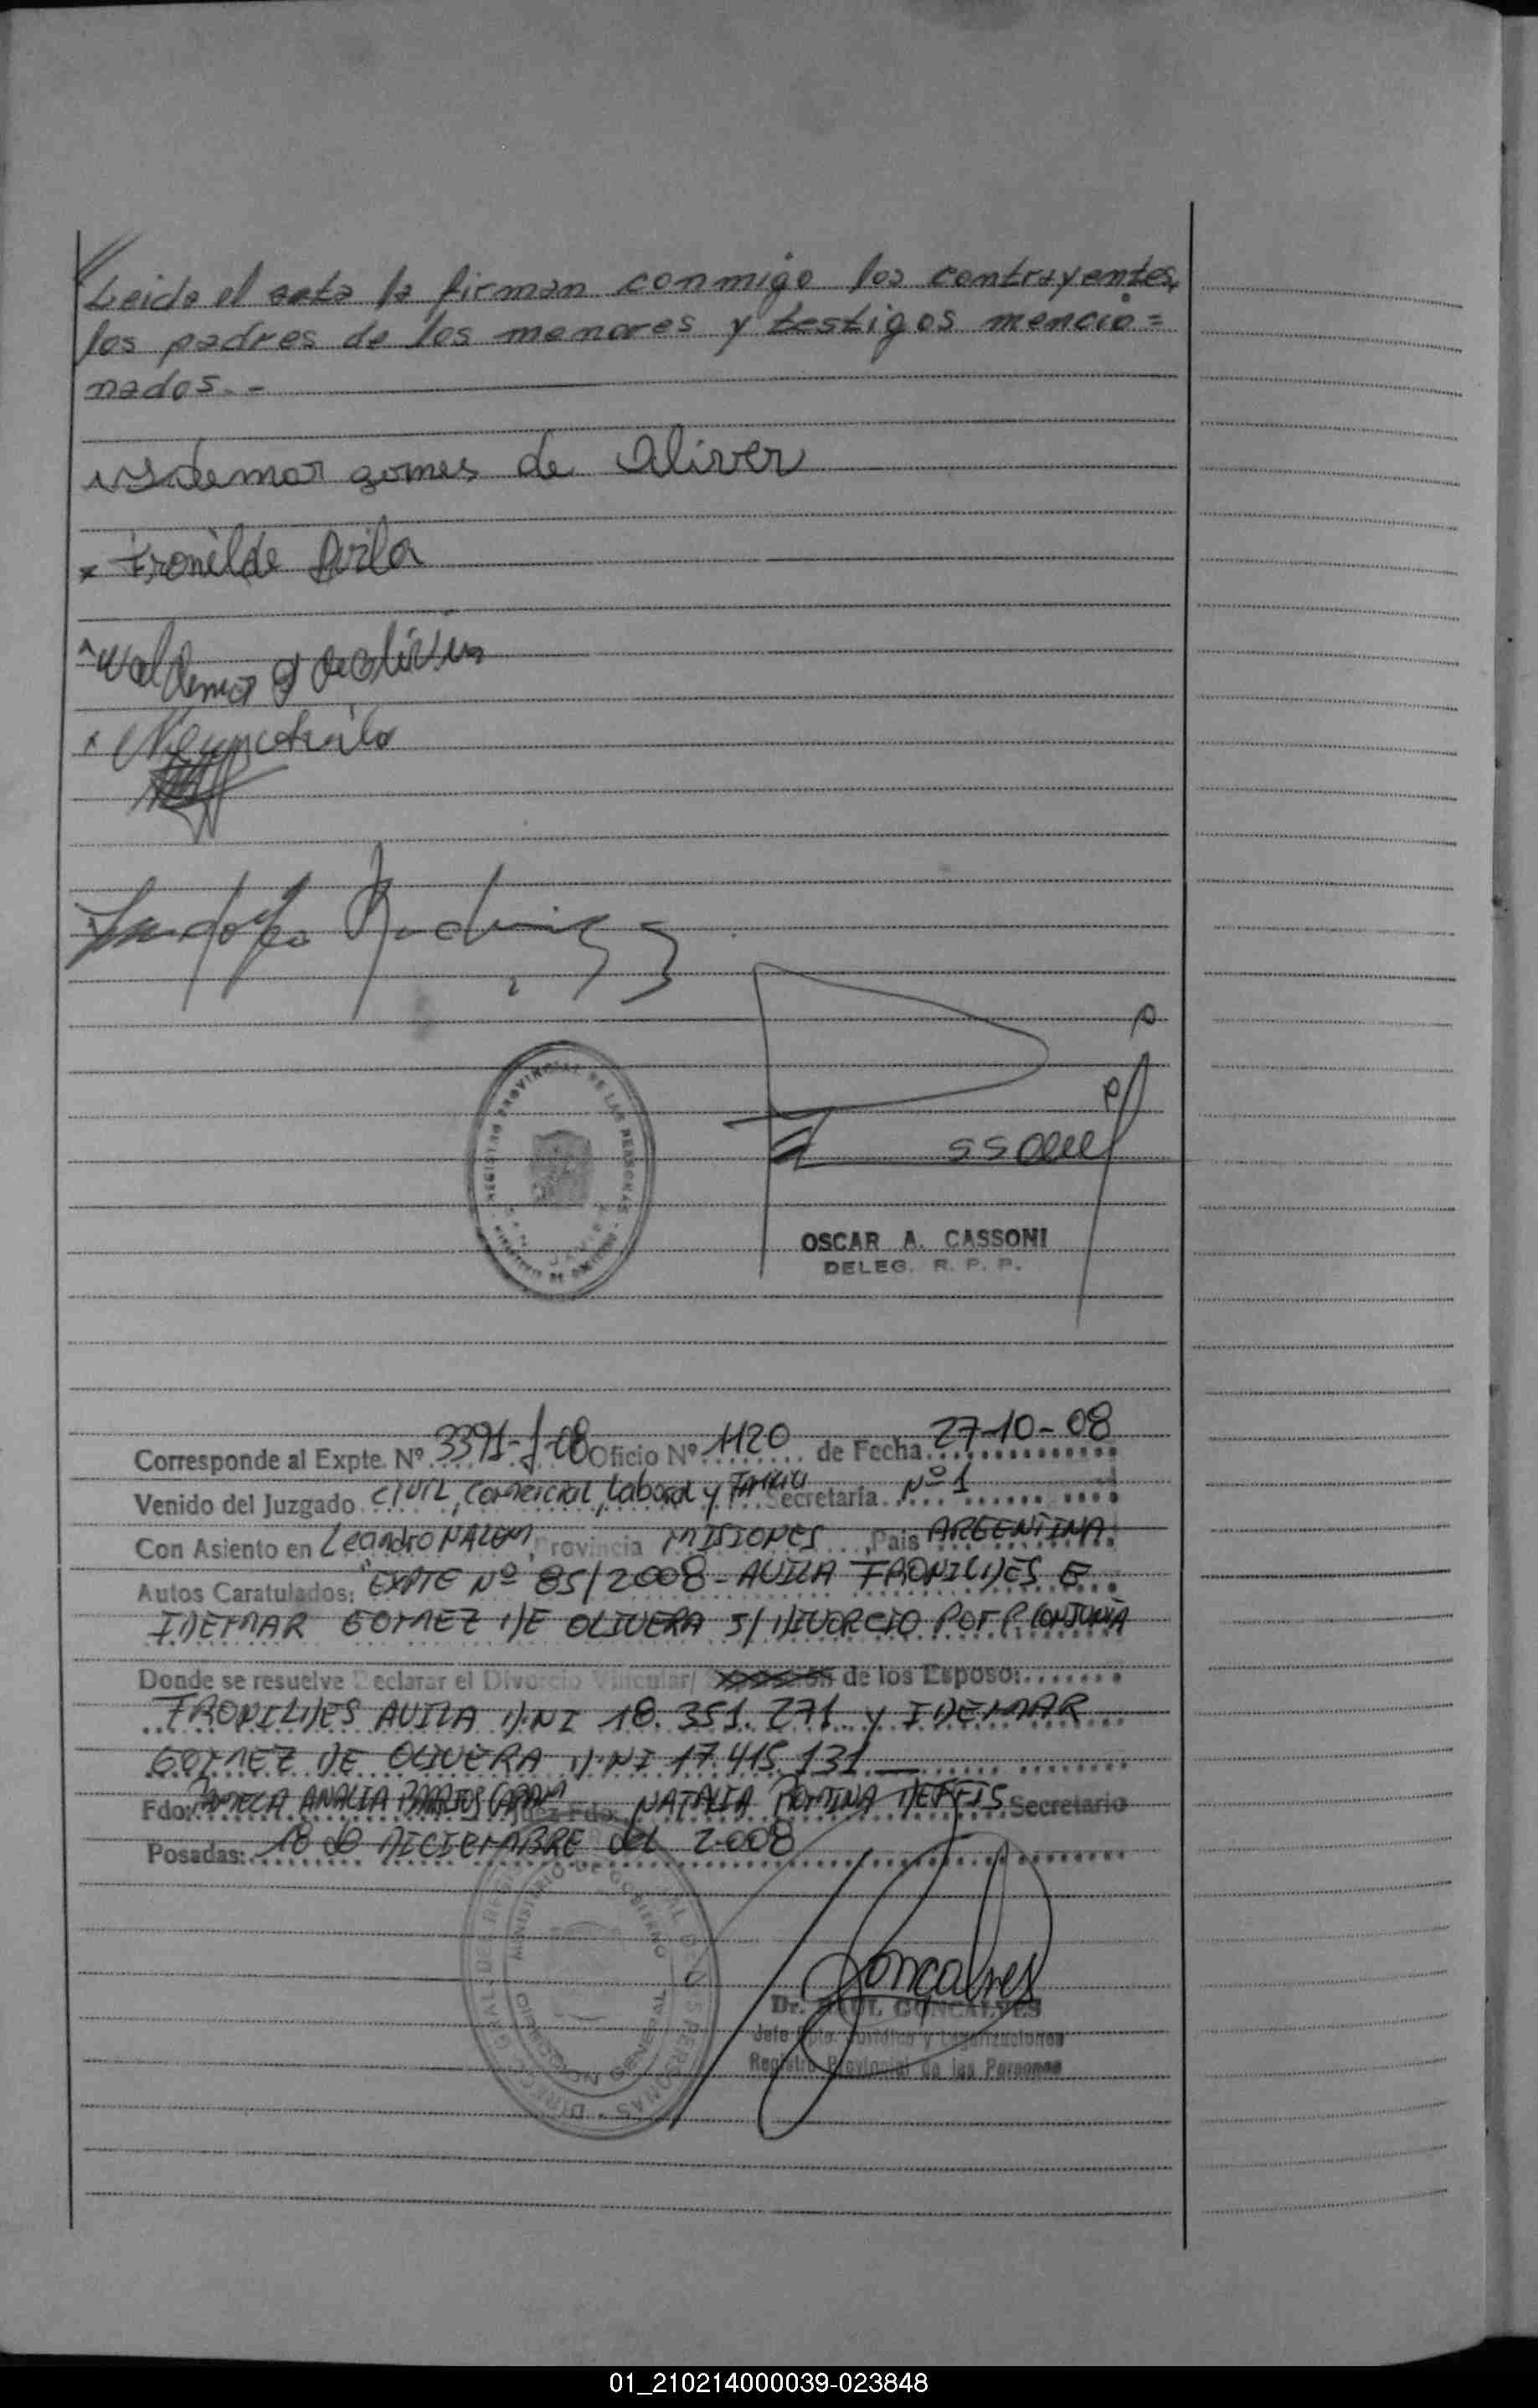 Leida el acta la firman conmigo los contrayentes,
los padres de los menores y testigos mencio=
nados.-
Ydemar gomes de Oliver
x Fronilde Avila
OSCAR A. CASSONI
DELEG. R. P. P.
Corresponde al Expte. Nº 3391-J-08 Oficio Nº 1120 de Fecha 27-10-08
Venido del Juzgado CIVIL, Comercial, Laboral y Familia Secretaría Nº 1
Con Asiento en Leandro N ALEM, Provincia MISIONES, Pais ARGENTINA
Autos Caratulados: "EXPTE Nº 85/2008 - AVILA FRONILDES E
IDEMAR GOMEZ DE OLIVERA S/ DIVORCIO POR P. CONJUNTA
Donde se resuelve Declarar el Divorcio Vincular/ de los Esposo:
FRONILDES AVILA D.NI 18.351.271 y IDEMAR
GOMEZ DE OLIVERA D.NI 17.415.131
Fdo: ANALIA BARRIOS Juez Fdo: NATALIA ROMINA Secretario
Posadas: 18 de DICIEMBRE del 2008
Goncalves
Dr. RAUL GONCALVES
Jefe Dpto. Juridico y Legalizaciones
Registro Provincial de las Personas
01_210214000039-023848